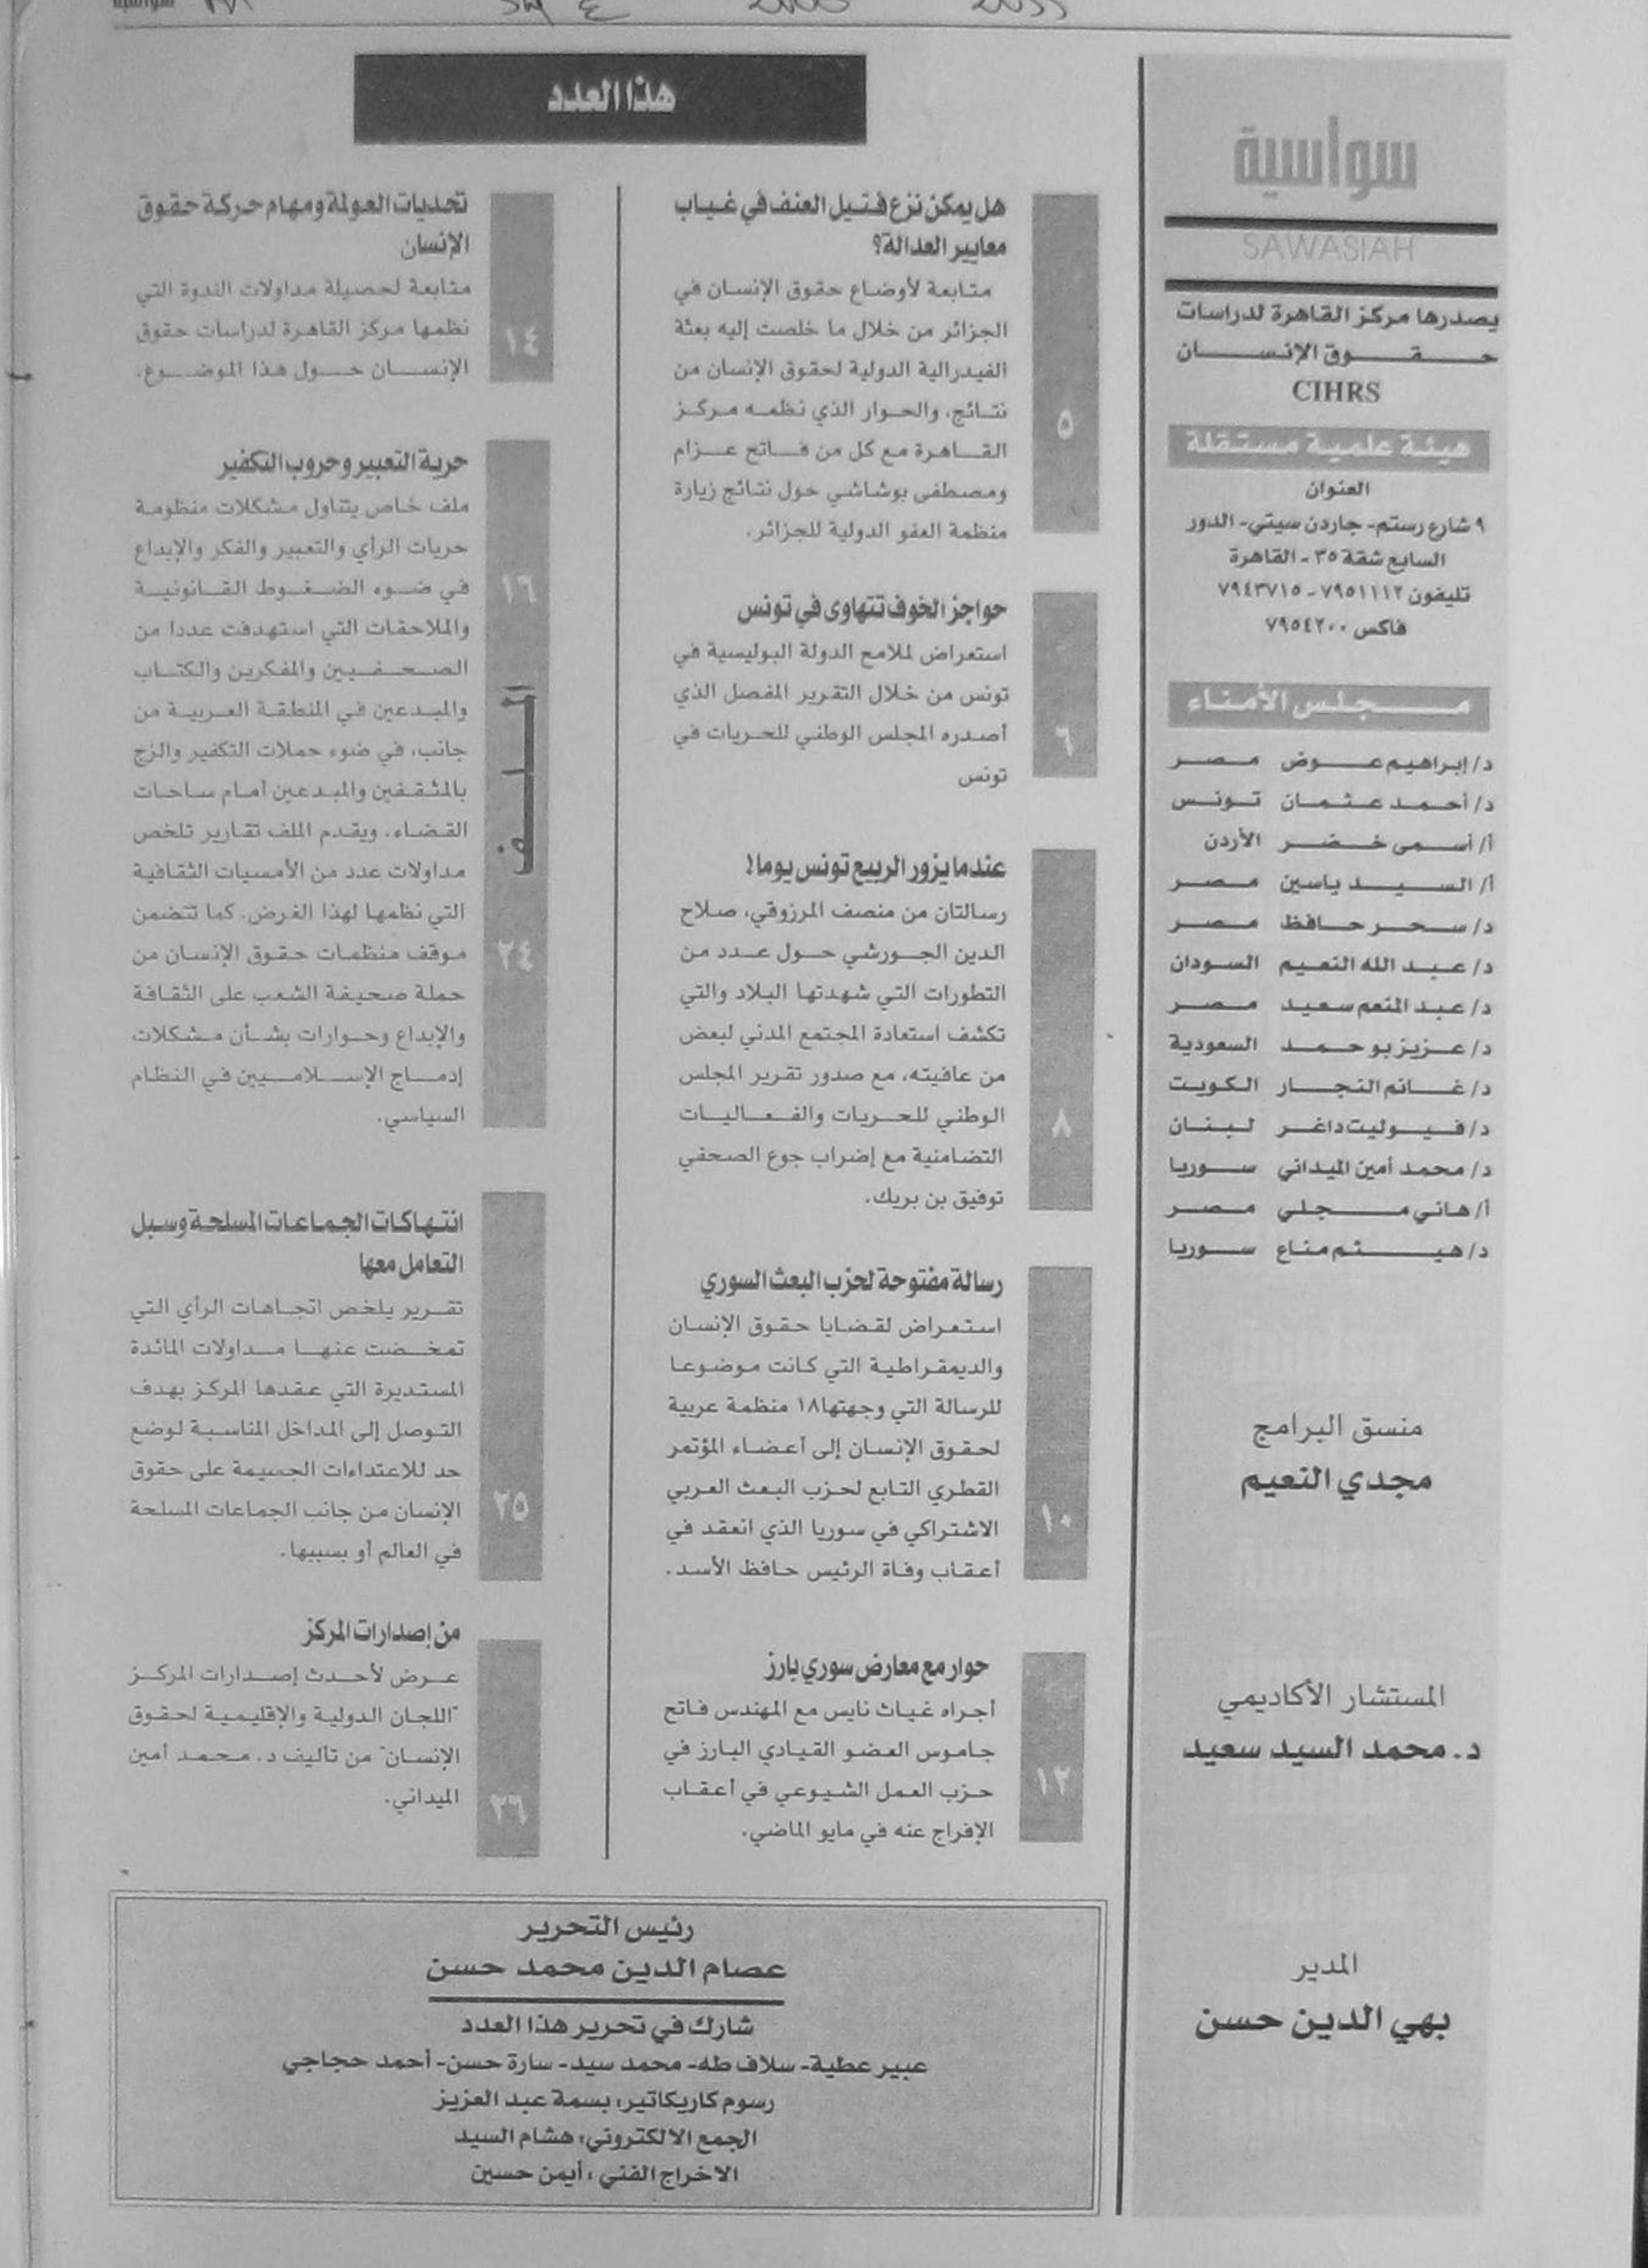 سواسية
هذا العدد
سواسية
SAWASIAH
يصدرها مركز القاهرة لدراسات
حقوق الإنسان
CIHRS
هيئة علمية مستقلة
العنوان
٩ شارع رستم- جاردن سيتي- الدور
السابع شقة ٣٥ - القاهرة
تليفون ٧٩٥١١١٢ - ٧٩٤٣٧١٥
فاكس ٧٩٥٤٢٠٠
مجلس الأمناء
د/ إبراهيم عوض مصر
د/ أحمد عثمان تونس
أ/ أسمى خضر الأردن
أ/ السيد ياسين مصر
د/ سحر حافظ مصر
د/ عبد الله النعيم السودان
د/ عبد المنعم سعيد مصر
د/ عزيز بو حمد السعودية
د/ غانم النجار الكويت
د/ فيوليت داغر لبنان
د/ محمد أمين الميداني سوريا
أ/ هاني مجلي مصر
د/ هيثم مناع سوريا
منسق البرامج
مجدي النعيم
المستشار الأكاديمي
د. محمد السيد سعيد
المدير
بهي الدين حسن
هل يمكن نزع فتيل العنف في غياب
معايير العدالة؟
متابعة لأوضاع حقوق الإنسان في
الجزائر من خلال ما خلصت إليه بعثة
الفيدرالية الدولية لحقوق الإنسان من
نتائج، والحوار الذي نظمه مركز
القاهرة مع كل من فاتح عزام
ومصطفى بوشاشي حول نتائج زيارة
منظمة العفو الدولية للجزائر.
٥
حواجز الخوف تتهاوى في تونس
استعراض لملامح الدولة البوليسية في
تونس من خلال التقرير المفصل الذي
أصدره المجلس الوطني للحريات في
تونس
٦
عندما يزور الربيع تونس يوما!
رسالتان من منصف المرزوقي، صلاح
الدين الجورشي حول عدد من
التطورات التي شهدتها البلاد والتي
تكشف استعادة المجتمع المدني لبعض
من عافيته، مع صدور تقرير المجلس
الوطني للحريات والفعاليات
التضامنية مع إضراب جوع الصحفي
توفيق بن بريك.
٨
رسالة مفتوحة لحزب البعث السوري
استعراض لقضايا حقوق الإنسان
والديمقراطية التي كانت موضوعا
للرسالة التي وجهتها١٨ منظمة عربية
لحقوق الإنسان إلى أعضاء المؤتمر
القطري التابع لحزب البعث العربي
الاشتراكي في سوريا الذي انعقد في
أعقاب وفاة الرئيس حافظ الأسد.
١٠
حوار مع معارض سوري بارز
أجراه غياث نايس مع المهندس فاتح
جاموس العضو القيادي البارز في
حزب العمل الشيوعي في أعقاب
الإفراج عنه في مايو الماضي.
١٢
تحديات العولمة ومهام حركة حقوق
الإنسان
متابعة لحصيلة مداولات الندوة التي
نظمها مركز القاهرة لدراسات حقوق
الإنسان حول هذا الموضوع.
١٤
حرية التعبير وحروب التكفير
ملف خاص يتناول مشكلات منظومة
حريات الرأي والتعبير والفكر والإبداع
في ضوء الضغوط القانونية
والملاحقات التي استهدفت عددا من
الصحفيين والمفكرين والكتاب
والمبدعين في المنطقة العربية من
جانب، في ضوء حملات التكفير والزج
بالمثقفين والمبدعين أمام ساحات
القضاء. ويقدم الملف تقارير تلخص
مداولات عدد من الأمسيات الثقافية
التي نظمها لهذا الغرض. كما تتضمن
موقف منظمات حقوق الإنسان من
حملة صحيفة الشعب على الثقافة
والإبداع وحوارات بشأن مشكلات
إدماج الإسلاميين في النظام
السياسي.
١٦
الملف
٢٤
انتهاكات الجماعات المسلحة وسبل
التعامل معها
تقرير يلخص اتجاهات الرأي التي
تمخضت عنها مداولات المائدة
المستديرة التي عقدها المركز بهدف
التوصل إلى المداخل المناسبة لوضع
حد للاعتداءات الجسيمة على حقوق
الإنسان من جانب الجماعات المسلحة
في العالم أو بسببها.
٢٥
من إصدارات المركز
عرض لأحدث إصدارات المركز
"اللجان الدولية والإقليمية لحقوق
الإنسان" من تأليف د. محمد أمين
الميداني.
٢٦
رئيس التحرير
عصام الدين محمد حسن
شارك في تحرير هذا العدد
عبير عطية- سلاف طه- محمد سيد- سارة حسن- أحمد حجاجي
رسوم كاريكاتير: بسمة عبد العزيز
الجمع الالكتروني: هشام السيد
الاخراج الفني : أيمن حسين